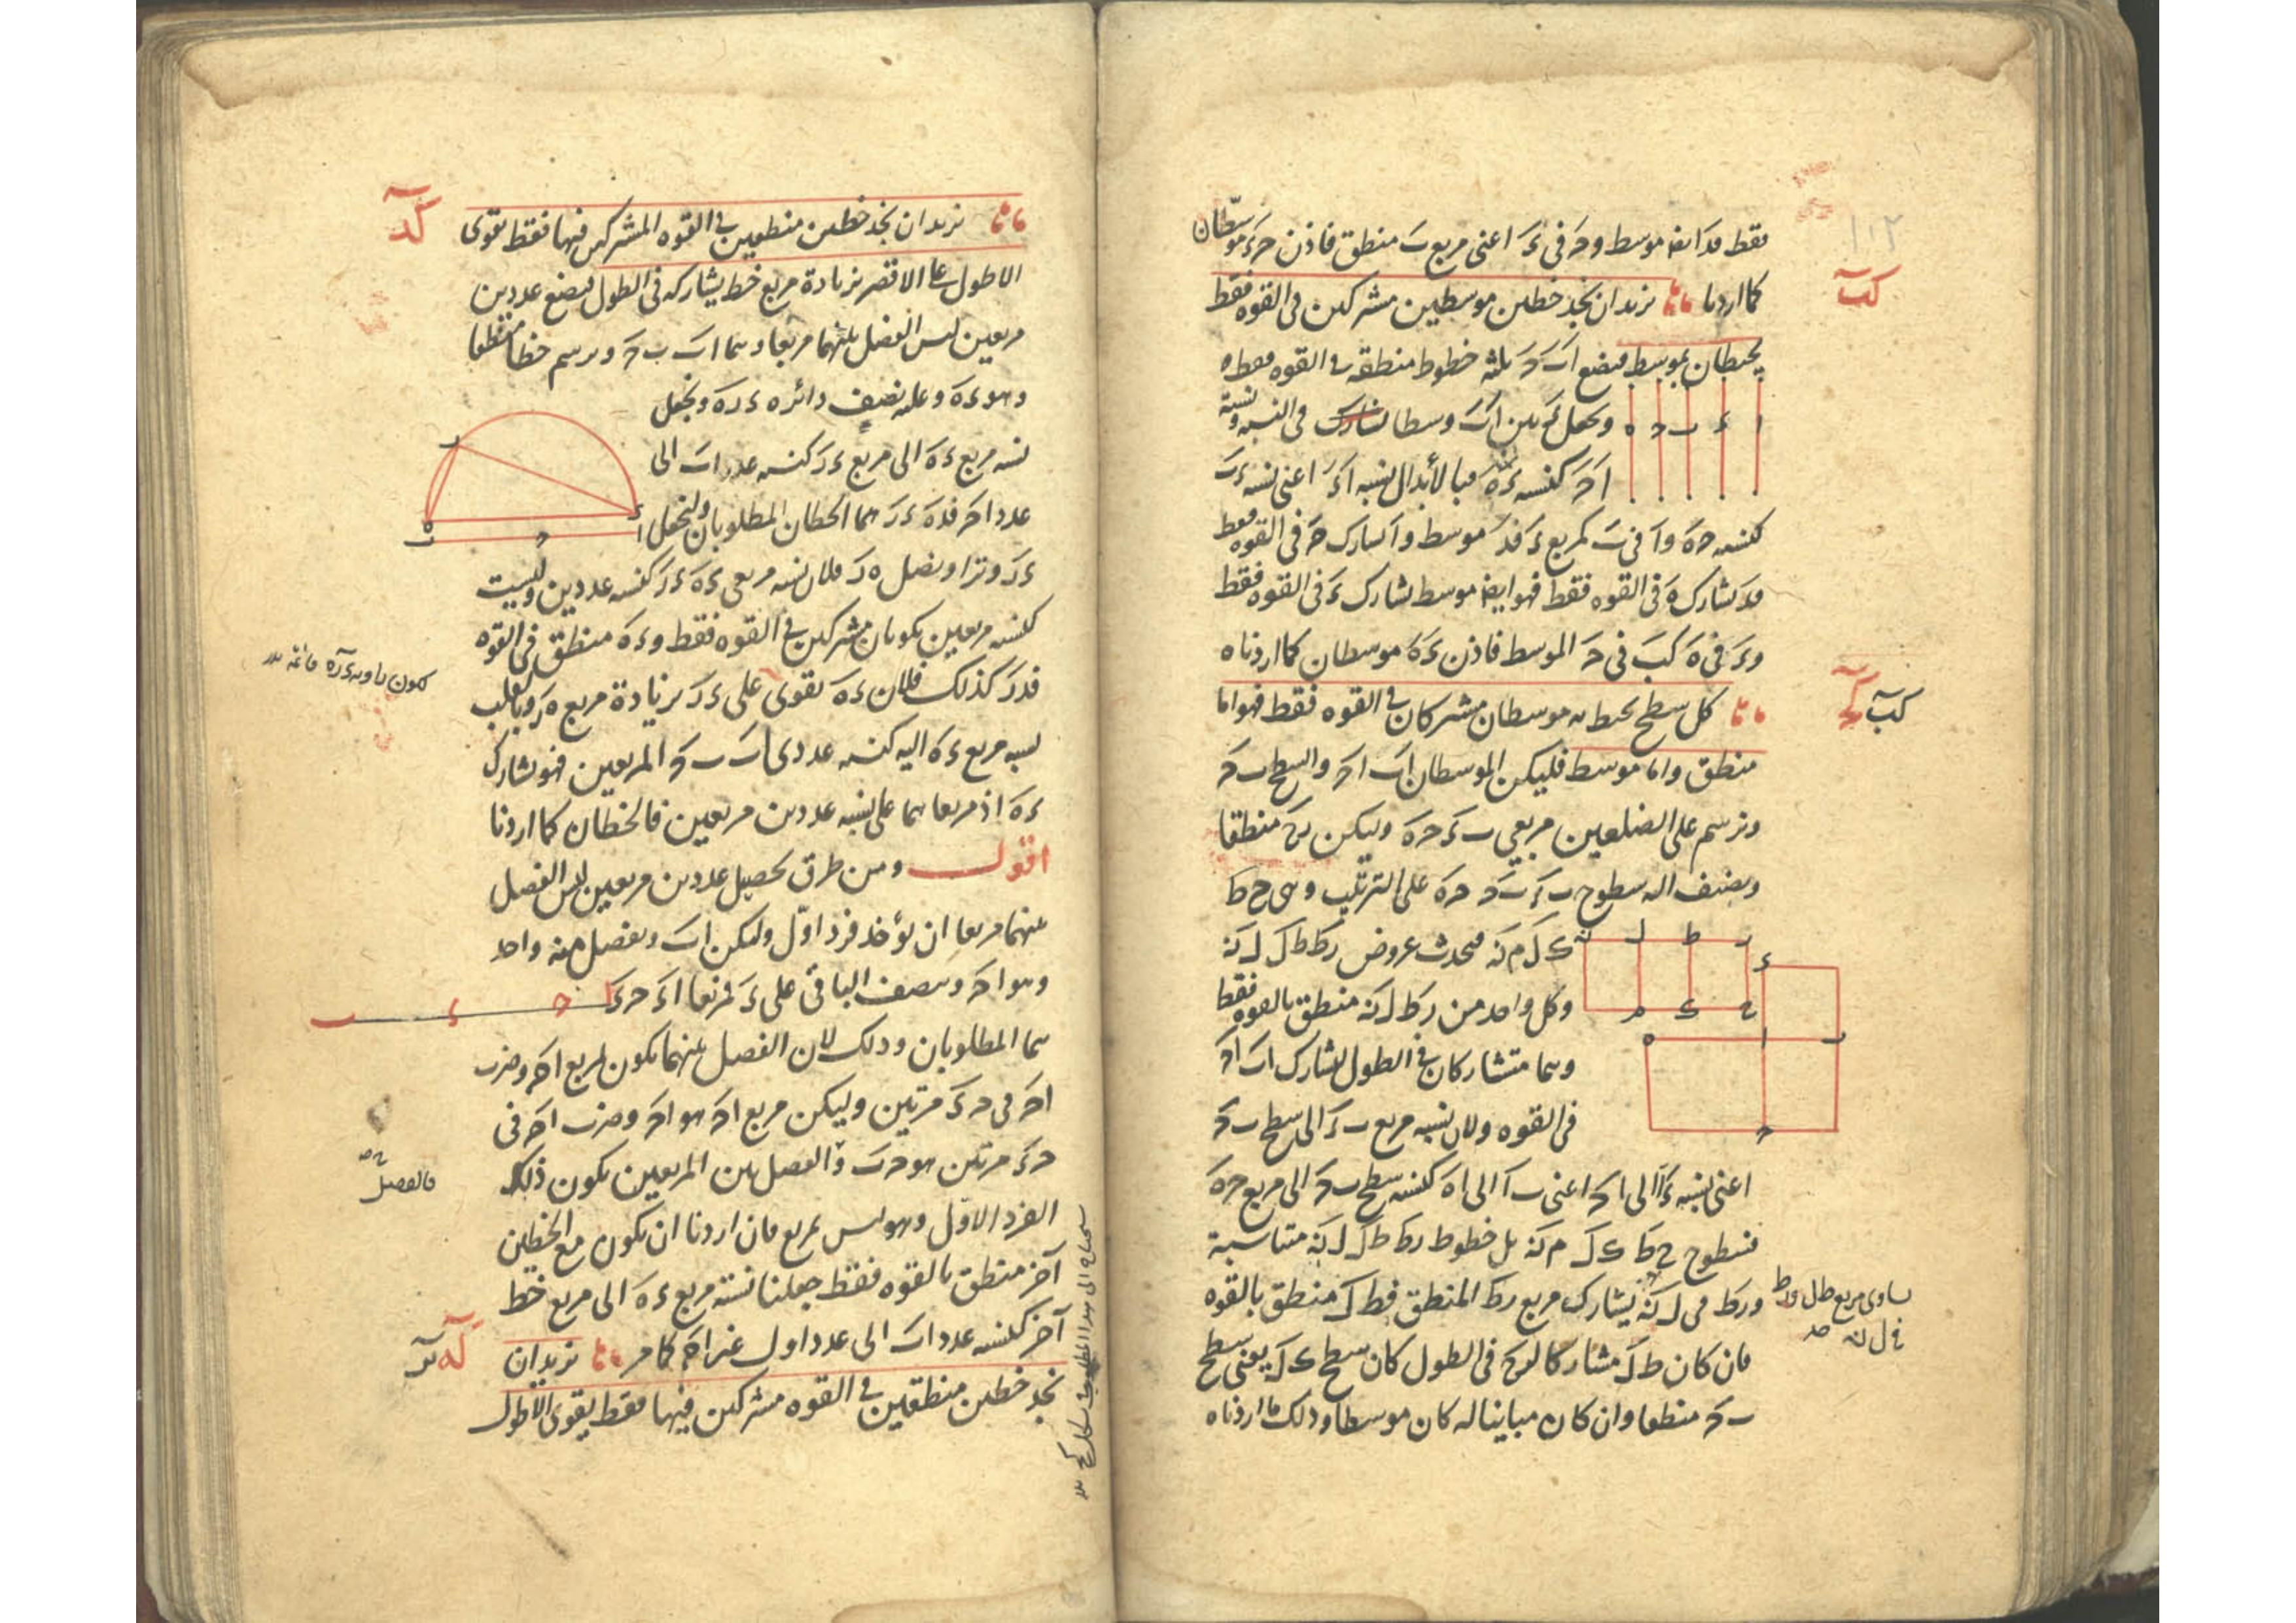 ١٠٢
فقط فد ايضا موسط و حَ في ءَ اعنى مربع بَ منطق فاذن حَ ءَ موسّطان
كب
كما اردنا نريد ان نجد خطين موسطين مشتركين فى القوه فقط
يحيطان بموسط فنضع اَ بَ حَ ثلثه خطوط منطقه فى القوه فقط
ونجعل ءَ بين اَ بَ وسطا فى النسبه ونسبة
ا ء ب ح ه
اَ حَ كنسبه ءَ هَ فبالأبدال نسبه اَ ءَ اعنى نسبه ءَ بَ
كنسبه حَ هَ و اَ فى بَ كمربع ءَ فد موسط و اَ يشارك حَ فى القوه فقط
فد يشارك هَ فى القوه فقط فهو ايضا موسط يشارك ءَ فى القوه فقط
و ءَ فى هَ كبَ فى حَ الموسط فاذن ءَ هَ موسطان كما اردناه
كب كج
كل سطح يحيط به موسطان مشتركان فى القوه فقط فهو اما
منطق واما موسط فليكن الموسطان اب اح والسطح ب ح
ونرسم على الضلعين مربعي ب ء ح ه وليكن منطقا
ونضيف اليه سطوح ب ء ب ح ح ه على الترتيب وهى ح ط
ك ل م ن فيحدث عروض ر ط ط ل ل ن
وكل واحد من ر ط ل ن منطق بالقوه فقط
وهما متشاركان فى الطول لتشارك اب اح
فى القوه ولان نسبه مربع ب ء الى سطح ب ح
اعنى نسبه ء ا الى اح اعنى ب ا الى اه كنسبه سطح ب ح الى مربع ح ه
فسطوح ح ط ك ل م ن بل خطوط ر ط ط ل ل ن متناسبة
و ر ط فى ل ن يشارك مربع ر ط المنطق فط ل منطق بالقوه
يساوى مربع ط ل و ر ط
فى ل ن
فان كان ط ل مشاركا لرح فى الطول كان سطح ك ل يعنى سطح
ب ح منطقا وان كان مباينا له كان موسطا وذلك ما اردناه
كد
نريد ان نجد خطين منطقين فى القوه المشتركين فيها فقط يقوى
الاطول على الاقصر بزيادة مربع خط يشاركه فى الطول فنضع عددين
مربعين ليس الفضل بينهما مربعا وهما اب ب ح ونرسم خطا منطقا
وهو ء ه وعليه نصف دائره ء ر ه ونجعل
نسبه مربع ء ه الى مربع ء ر كنسبه عدد اب الى
عدد اح فد ه ء ر هما الخطان المطلوبان ولنجعل
ء ر وترا ونصل ه ر فلان نسبه مربعى ء ه ء ر كنسبه عددين وليست
كنسبه مربعين يكونان مشتركين فى القوه فقط و ء ه منطق فى القوه
فد ر كذلك فلان ء ه يقوى على ء ر بزيادة مربع ه ر وبالقلب
لكون زاويه ء ر ه قائمه
نسبه مربع ء ه اليه كنسبه عددى اب ب ح المربعين فهو يشارك
ء ه اذ مربعاهما على نسبه عددين مربعين فالخطان كما اردنا
اقول ومن طرق تحصيل عددين مربعين ليس الفضل
بينهما مربعا ان يؤخذ فرد اوّل وليكن اب ونفصل منه واحد
وهو اح وننصف الباقى على ء فمربعا اء ح ء
ا ح ء ب
هما المطلوبان وذلك لان الفضل بينهما يكون لمربع اح وضرب
اح فى ح ء مرتين وليكن مربع اح هو اح وضرب اح فى
ح ء مرتين هو ح ب والفضل بين المربعين يكون ذلك
فالفضل
الفرد الاوّل وهو ليس بمربع فان اردنا ان يكون مع الخطين
آخر منطق بالقوه فقط جعلنا نسبة مربع ء ه الى مربع خط
آخر كنسبه عدد اب الى عدد اول غير اح كما مر نريدان
كه
نجد خطين منطقين فى القوه مشتركين فيها فقط يقوى الاطول